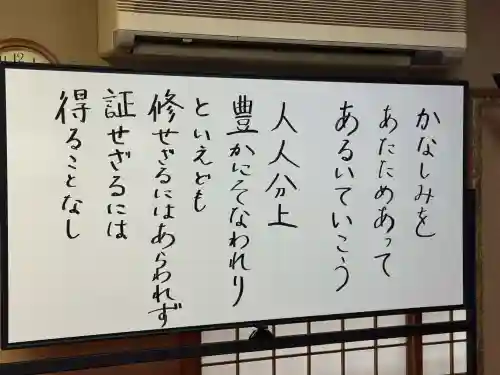 かなしみを
あたためあって
あるいていこう
人人分上
豊かにそなわれり
といえども
修せざるにはあらわれず
証せざるには
得ることなし
12